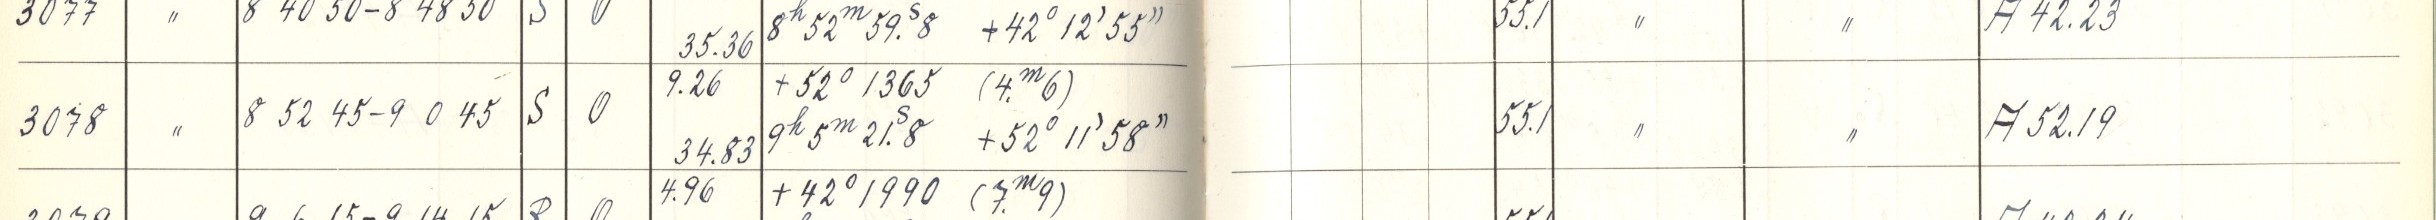 3077 " 8 40 50-8 48 50 S O 35.36 8h 52m 59.s8 +42° 12' 55" 55.1 " " A 42.23
9.26 +52° 1365 (4.m6)
3078 " 8 52 45-9 0 45 S O 55.1 " " A 52.19
34.83 9h 5m 21.s8 +52° 11' 58"
4.96 +42° 1990 (7.m9)
3079 9 6 15-9 14 15 O 55.1